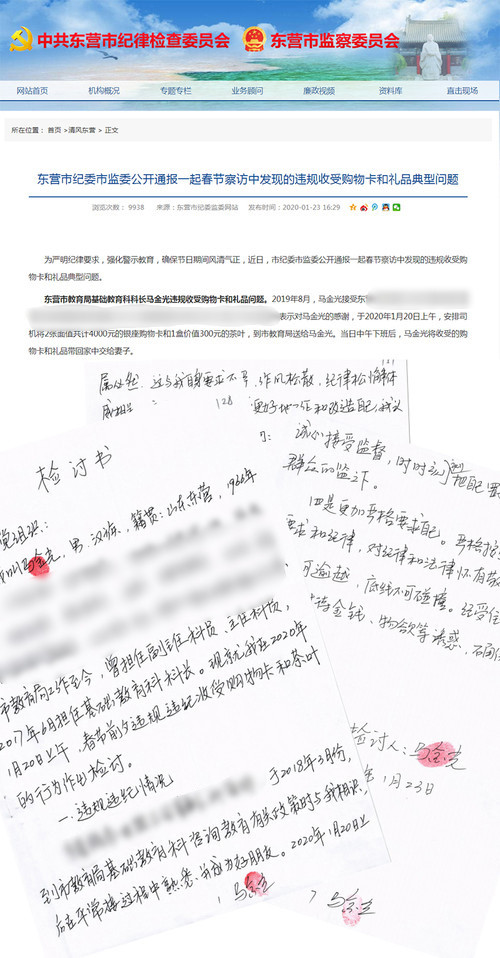 中共东营市纪律检查委员会 东营市监察委员会
网站首页 机构概况 专题专栏 业务顾问 廉政视频 资料库 直击现场
所在位置： 首页 >清风东营 > 正文
东营市纪委市监委公开通报一起春节察访中发现的违规收受购物卡和礼品典型问题
浏览次数： 9938 来源：东营市纪委监委网站 发布时间：2020-01-23 16:29
为严明纪律要求，强化警示教育，确保节日期间风清气正，近日，市纪委市监委公开通报一起春节察访中发现的违规收受购
物卡和礼品典型问题。
东营市教育局基础教育科科长马金光违规收受购物卡和礼品问题。2019年8月，马金光接受东
表示对马金光的感谢，于2020年1月20日上午，安排司
机将2张面值共计4000元的银座购物卡和1盒价值300元的茶叶，到市教育局送给马金光。当日中午下班后，马金光将收受的购
物卡和礼品带回家中交给妻子。
检讨书
党组织：
马金光，男，汉族，籍贯：山东东营，1966年
市教育局工作至今，曾担任副主任科员、主任科员，
2017年6月担任基础教育科科长。现就我在2020年
1月20日上午，春节前夕违规违纪收受购物卡和茶叶
的行为作出检讨。
一、违规违纪情况
于2018年3月份，
到市教育局基础教育科咨询教育有关政策时与我相识，
后在平常接过程中熟悉，并成为好朋友。2020年1月20日上
马金光
属必然。这与我自身要求不严，作风松散，纪律松懈
诚心接受监督，时时刻刻把自己置
群众的监下。
四是更加严格要求自己。严格按
要求和纪律，对纪律和法律怀有敬
可逾越，底线不可碰撞。经受住
金钱、物欲等诱惑，
检讨人：马金光
1月23日
马金光